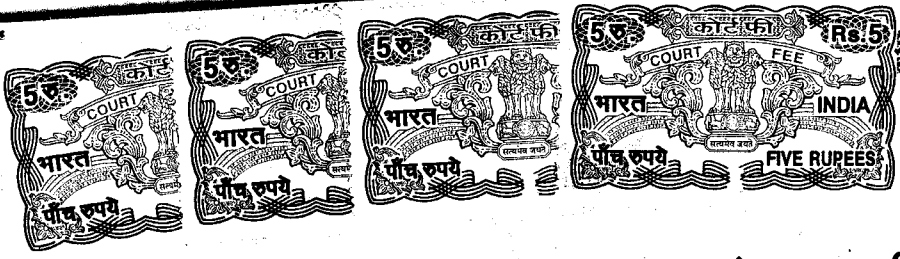 5 रु. कोर्ट
COURT
भारत
पाँच रुपये
5 रु. कोर्ट
COURT
भारत
पाँच रुपये
5 रु. कोर्ट फी
COURT
भारत
सत्यमेव जयते
पाँच रुपये
5 रु. कोर्ट फी Rs.5
COURT FEE
भारत INDIA
सत्यमेव जयते
पाँच रुपये FIVE RUPEES